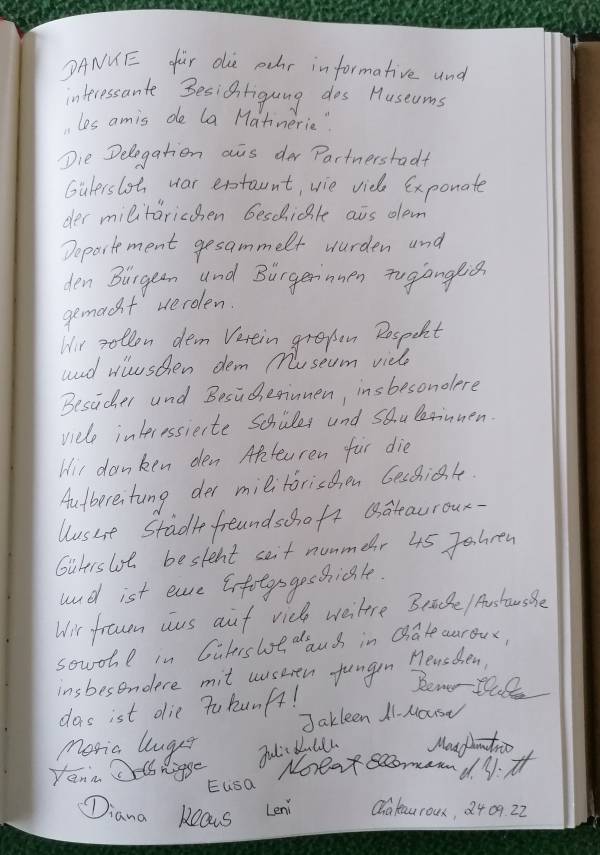 DANKE für die sehr informative und
interessante Besichtigung des Museums
„les amis de la Matinerie".
Die Delegation aus der Partnerstadt
Gütersloh war erstaunt, wie viele Exponate
der militärischen Geschichte aus dem
Departement gesammelt wurden und
den Bürgern und Bürgerinnen zugänglich
gemacht werden.
Wir zollen dem Verein großen Respekt
und wünschen dem Museum viele
Besucher und Besucherinnen, insbesondere
viele interessierte Schüler und Schülerinnen.
Wir danken den Akteuren für die
Aufbereitung der militärischen Geschichte.
Unsere Städtefreundschaft Châteauroux-
Gütersloh besteht seit nunmehr 45 Jahren
und ist eine Erfolgsgeschichte.
Wir freuen uns auf viele weitere Besuche/Austausche
sowohl in Gütersloh als auch in Châteauroux,
insbesondere mit unseren jungen Menschen,
das ist die Zukunft!
Jakleen Al-Mousa
Maria Unger
Norbert Ellermann
Elisa
Diana Klaus Leni Châteauroux, 24.09.22